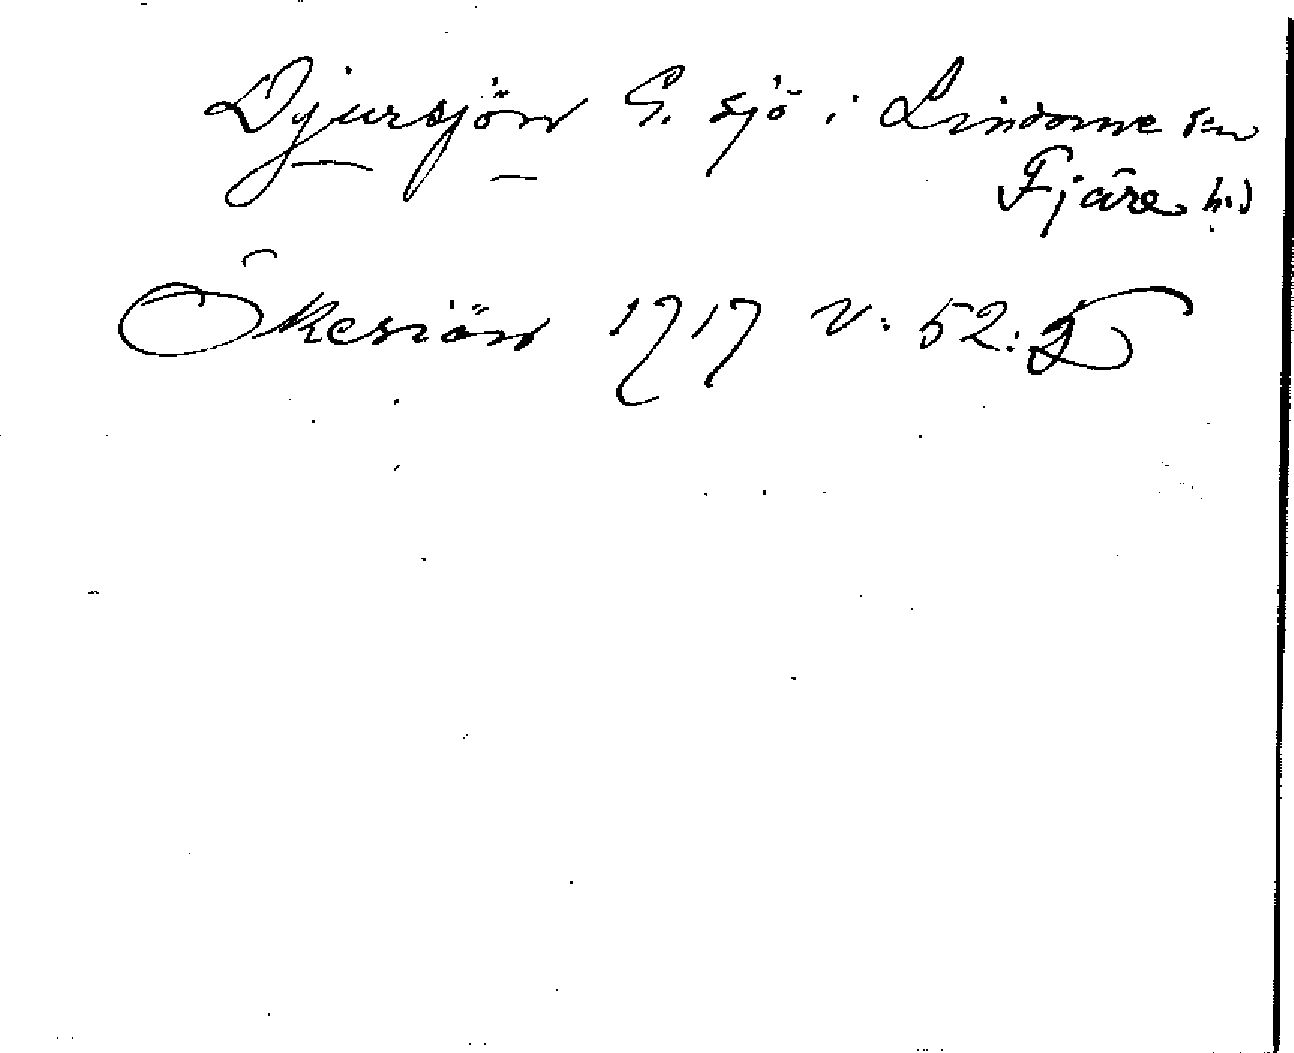 Djursjön G. sjö i Lindome sn
Fjäre hd
Ökesiön 1717 v: 52: